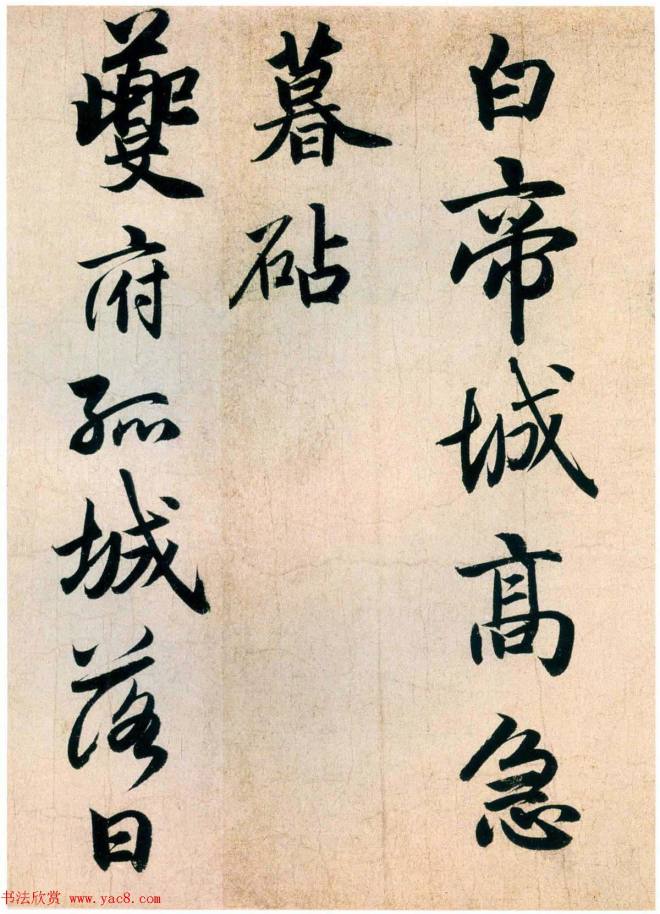 白帝城高急
暮砧
夔府孤城落日
书法欣赏 www.yac8.com